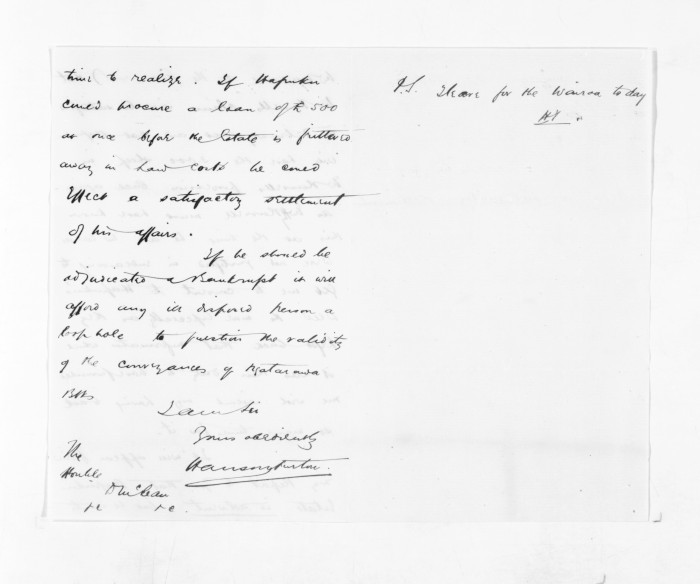 time to realize. If Hapuku
could procure a loan of £500
at once before the Estate is frittered
away in Law costs he could
Effect a satisfactory settlement
of his affairs.
If he should be
adjudicated a Bankrupt it will
afford any ill disposed Person a
loop hole to question the validity
of the conveyances of
Blks
I am Sir
Yours obediently
The
Honble
D McLean
&c &c.
P.S. I leave for the Wairoa to day